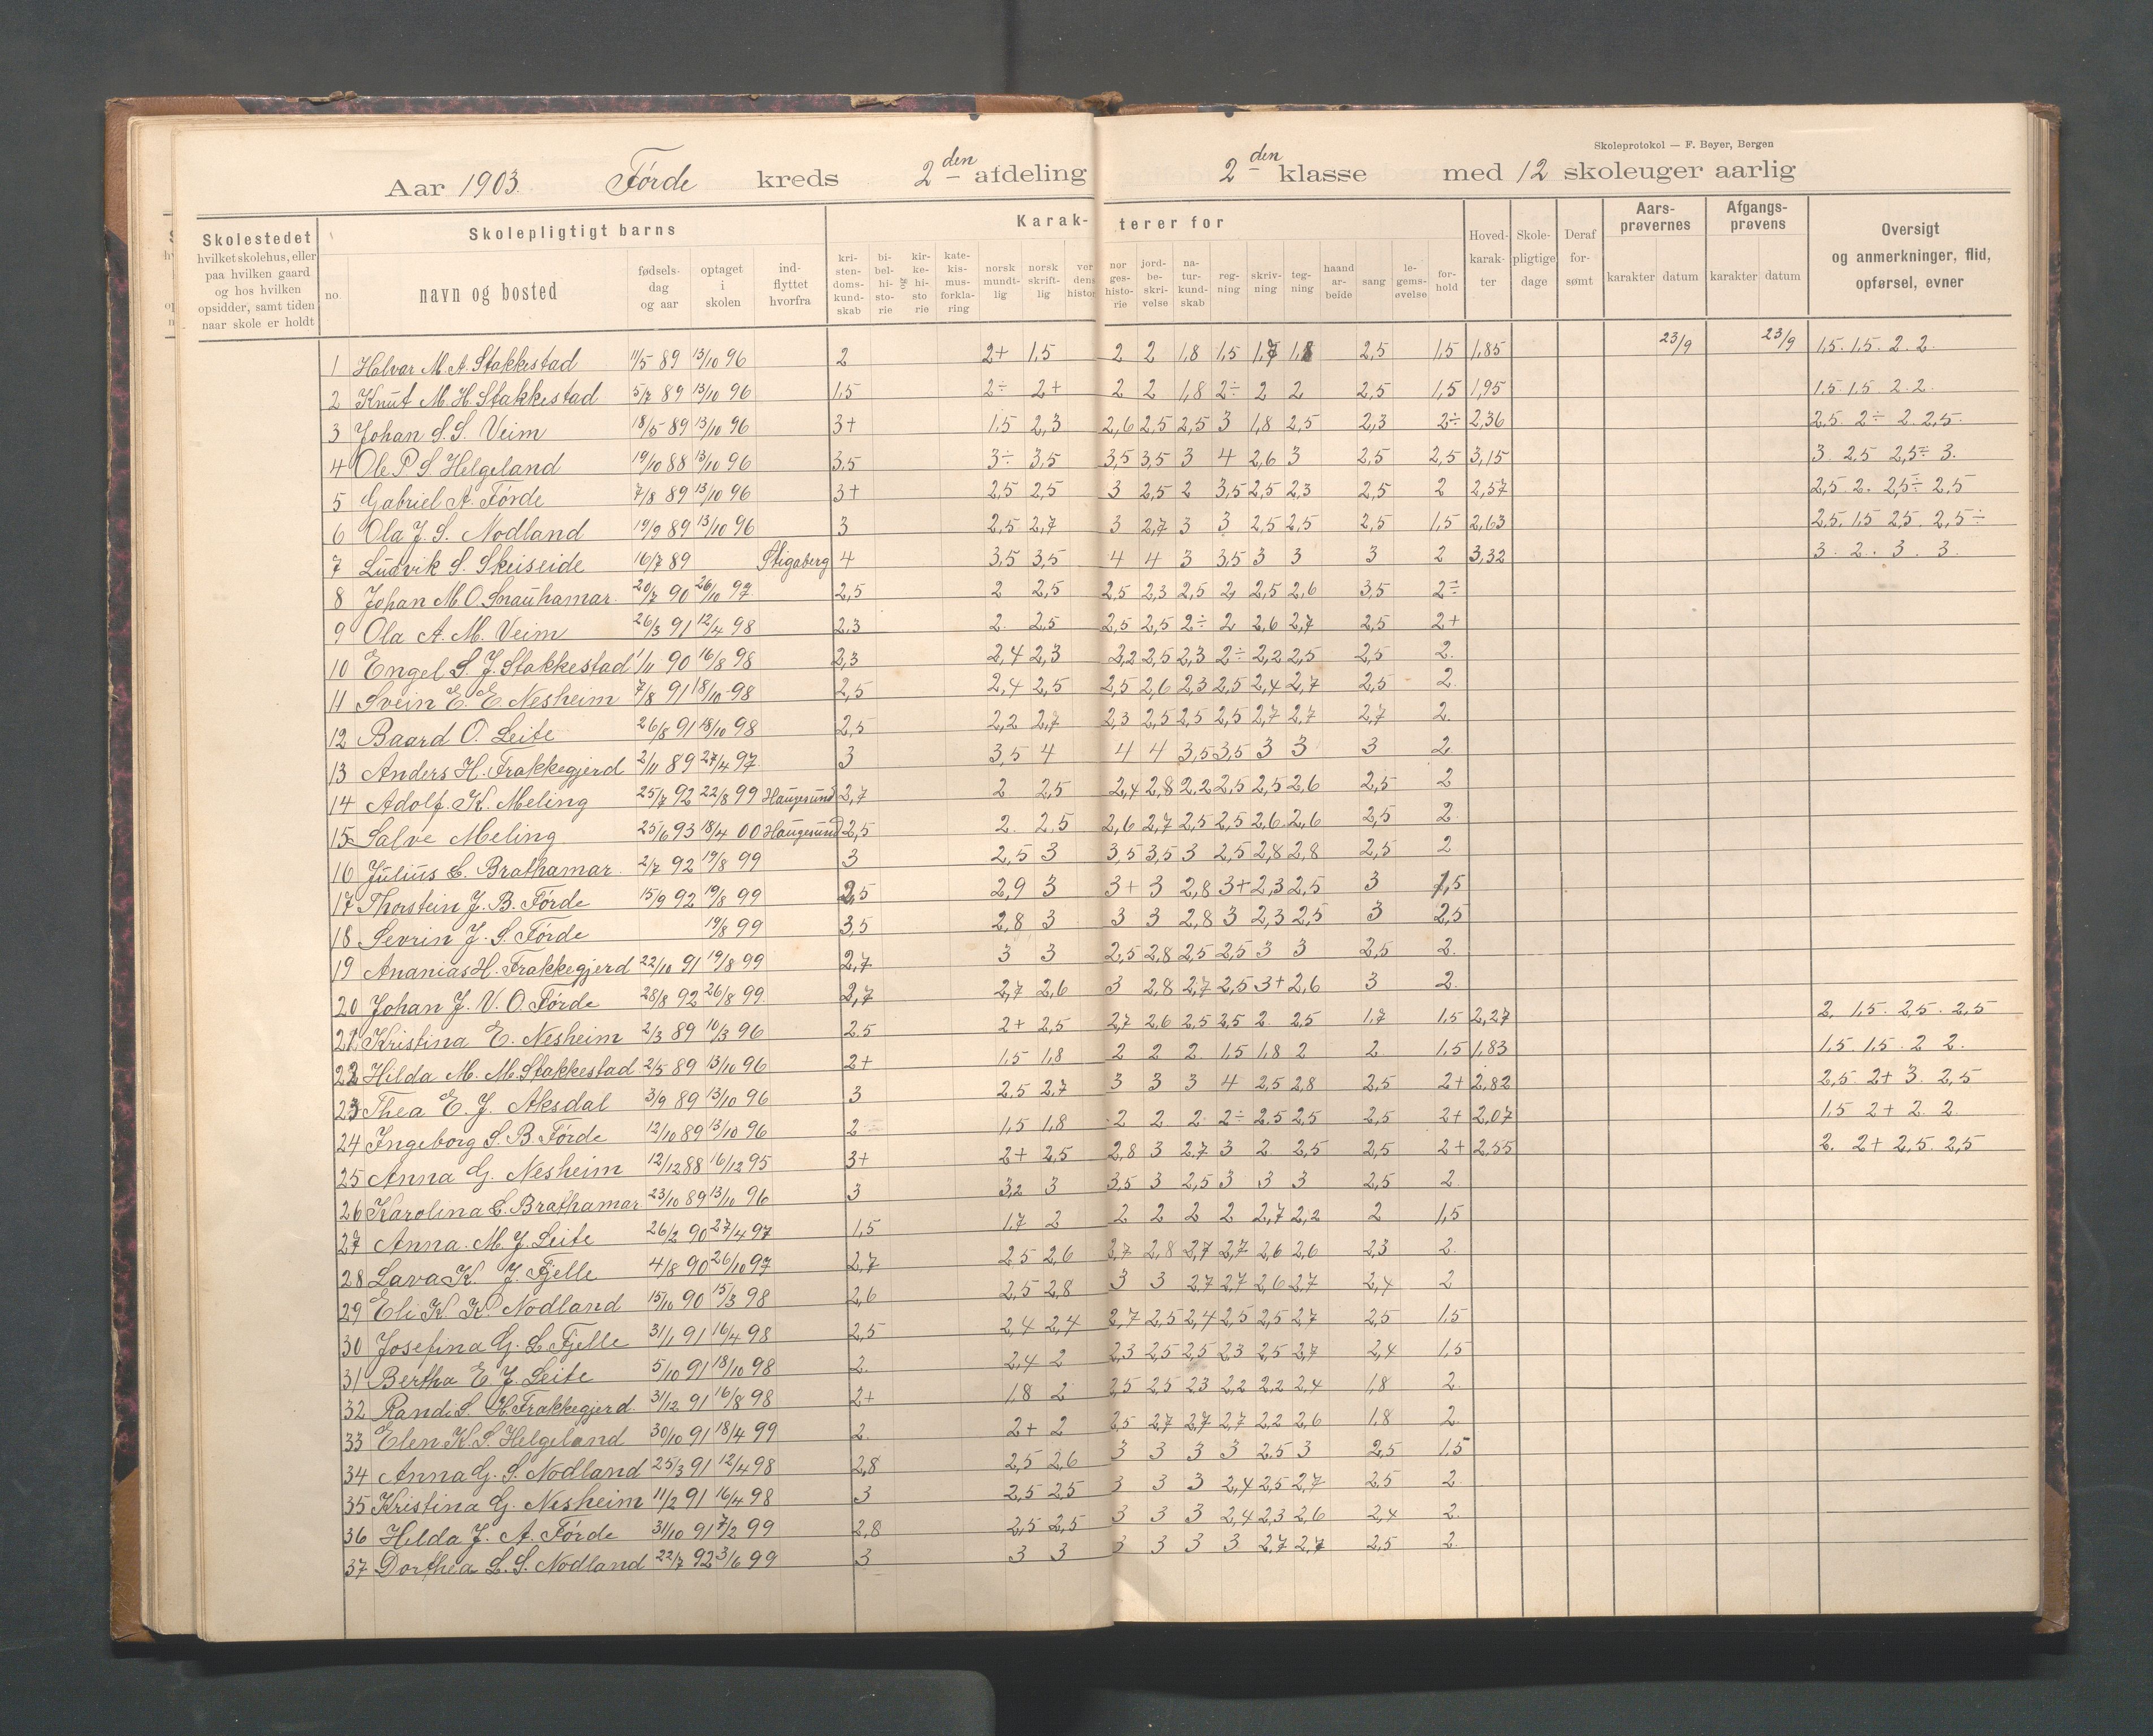 Skoleprotokol — F. Beyer, Bergen
Aar 1903. Førde kreds 2den afdeling 2den klasse med 12 skoleuger aarlig
Skolestedet hvilket skolehus, eller paa hvilken gaard og hos hvilken opsidder, samt tiden naar skole er holdt
Skolepligtigt barns
no. navn og bosted fødselsdag og aar optaget i skolen indflyttet hvorfra
Karakterer for
kristendomskundskab bibelhistorie og kirkehistorie katekismusforklaring norsk mundtlig norsk skriftlig verdenshistor norgeshistorie jordbeskrivelse naturkundskab regning skrivning tegning haandarbeide sang legemsøvelse forhold
Hovedkarakter Skolepligtige dage Deraf forsømt Aarsprøvernes karakter datum Afgangsprøvens karakter datum
Oversigt og anmerkninger, flid, opførsel, evner
1 Halvar M. A. Stakkestad 11/5 89 13/10 96 2 2+ 1,5 2 2 1,8 1,5 1,7 1,8 2,5 1,5 1,85 23/9 23/9 1,5. 1,5. 2. 2.
2 Knut M. H. Stakkestad 5/7 89 13/10 96 1,5 2÷ 2+ 2 2 1,8 2÷ 2 2 2,5 1,5 1,95 1,5. 1,5. 2. 2.
3 Johan S. S. Veim 18/5 89 13/10 96 3+ 1,5 2,3 2,6 2,5 2,5 3 1,8 2,5 2,3 2÷ 2,36 2,5. 2÷ 2. 2,5.
4 Ole P. S. Helgeland 19/10 88 13/10 96 3,5 3÷ 3,5 3,5 3,5 3 4 2,6 3 2,5 2,5 3,15 3. 2,5 2,5÷ 3.
5 Gabriel A. Førde 7/8 89 13/10 96 3+ 2,5 2,5 3 2,5 2 3,5 2,5 2,3 2,5 2 2,57 2,5. 2. 2,5÷ 2,5
6 Ola J. S. Nodland 19/9 89 13/10 96 3 2,5 2,7 3 2,7 3 3 2,5 2,5 2,5 1,5 2,63 2,5. 1,5 2,5. 2,5÷
7 Ludvik S. Skeiseide 16/7 89 Stigaberg 4 3,5 3,5 4 4 3 3,5 3 3 3 2 3,32 3. 2. 3. 3.
8 Johan M. O. Snauhamar 20/7 90 26/10 97 2,5 2 2,5 2,5 2,3 2,5 2 2,5 2,6 3,5 2÷
9 Ola A. M. Veim 26/3 91 12/4 98 2,3 2. 2,5 2,5 2,5 2÷ 2 2,6 2,7 2,5 2+
10 Engel S. J. Stakkestad 1/11 90 16/8 98 2,3 2,4 2,3 3,2 2,5 2,3 2÷ 2,2 2,5 2,5 2.
11 Svein E. E. Nesheim 7/8 91 18/10 98 2,5 2,4 2,5 2,5 2,6 2,3 2,5 2,4 2,7 2,5 2.
12 Baard O. Leite 26/8 91 18/10 98 2,5 2,2 2,7 2,3 2,5 2,5 2,5 2,7 2,7 2,7 2.
13 Anders H. Frakkegjerd 2/11 89 27/4 97 3 3,5 4 4 4 3,5 3,5 3 3 3 2
14 Adolf K. Meling 25/7 92 22/8 99 Haugesund 2,7 2 2,5 2,4 2,8 2,2 2,5 2,5 2,6 2,5 2
15 Salve Meling 25/6 93 18/4 00 Haugesund 2,5 2. 2,5 2,6 2,7 2,5 2,5 2,6 2,6 2,5 2.
16 Julius L. Brathamar 2/7 92 19/8 99 3 2,5 3 3,5 3,5 3 2,5 2,8 2,8 2,5 2
17 Thorstein J. B. Førde 15/9 92 19/8 99 2,5 2,9 3 3+ 3 2,8 3+ 2,3 2,5 3 1,5
18 Sevrin J. S. Førde 19/8 99 3,5 2,8 3 3 3 2,8 3 2,3 2,5 3 2,5
19 Ananias H. Frakkegjerd 22/10 91 19/8 99 2,7 3 3 2,5 2,8 2,5 2,5 3 3 2,5 2.
20 Johan J. V. O. Førde 28/8 92 26/8 99 2,7 2,7 2,6 3 2,8 2,7 2,5 3+ 2,6 3 2.
21 Kristina E. Nesheim 2/3 89 10/3 96 2,5 2+ 2,5 2,7 2,6 2,5 2,5 2 2,5 1,7 1,5 2,27 2. 1,5. 2,5. 2,5
22 Hilda M. M. Stakkestad 2/5 89 13/10 96 2+ 1,5 1,8 2 2 2 1,5 1,8 2 2 1,5 1,83 1,5. 1,5. 2 2.
23 Thea E. J. Aksdal 3/9 89 13/10 96 3 2,5 2,7 3 3 3 4 2,5 2,8 2,5 2+ 2,82 2,5. 2+ 3. 2,5
24 Ingeborg S. B. Førde 12/10 89 13/10 96 2 1,5 1,8 2 2 2 2÷ 2,5 2,5 2,5 2+ 2,07 1,5 2+ 2. 2
25 Anna G. Nesheim 12/12 88 16/12 95 3+ 2+ 2,5 2,8 3 2,7 3 2 2,5 2,5 2+ 2,55 2. 2+ 2,5. 2,5
26 Karolina L. Brathamar 23/10 89 13/10 96 3 3,2 3 3,5 3 2,5 3 3 3 2,5 2.
27 Anna M. J. Leite 26/2 90 27/4 97 1,5 1,7 2 2 2 2 2 2,7 2,2 2 1,5
28 Lava K. J. Fjelle 4/8 90 26/10 97 2,7 2,5 2,6 2,7 2,8 2,7 2,7 2,6 2,6 2,3 2.
29 Eli K. K. Nodland 15/10 90 15/3 98 2,6 2,5 2,8 3 3 2,7 2,7 2,6 2,7 2,4 2
30 Josefina G. L. Fjelle 31/1 91 16/4 98 2,5 2,4 2,4 2,7 2,5 2,4 2,5 2,5 2,7 2,5 1,5
31 Bertha E. J. Leite 5/10 91 18/10 98 2. 2,4 2 2,3 2,5 2,5 2,3 2,5 2,7 2,4 1,5
32 Randi S. H. Frakkegjerd 31/12 91 16/8 98 2+ 1,8 2 2,5 2,5 2,3 2,2 2,2 2,4 1,8 2.
33 Elen K. S. Helgeland 30/10 91 18/4 99 2. 2+ 2 2,5 2,7 2,7 2,7 2,2 2,6 1,8 2.
34 Anna G. S. Nodland 25/3 91 12/4 98 2,8 2,5 2,6 3 3 3 3 2,5 3 2,5 1,5
35 Kristina G. Nesheim 11/2 91 16/4 98 3 2,5 2,5 3 3 3 2,4 2,5 2,7 2,5 2
36 Helda J. A. Førde 31/10 91 7/2 99 2,8 2,5 2,5 3 3 3 2,4 2,3 2,6 2,4 2.
37 Dorthea L. S. Nodland 22/7 92 3/6 99 3 3 3 3 3 3 3 2,7 2,7 2,5 2.